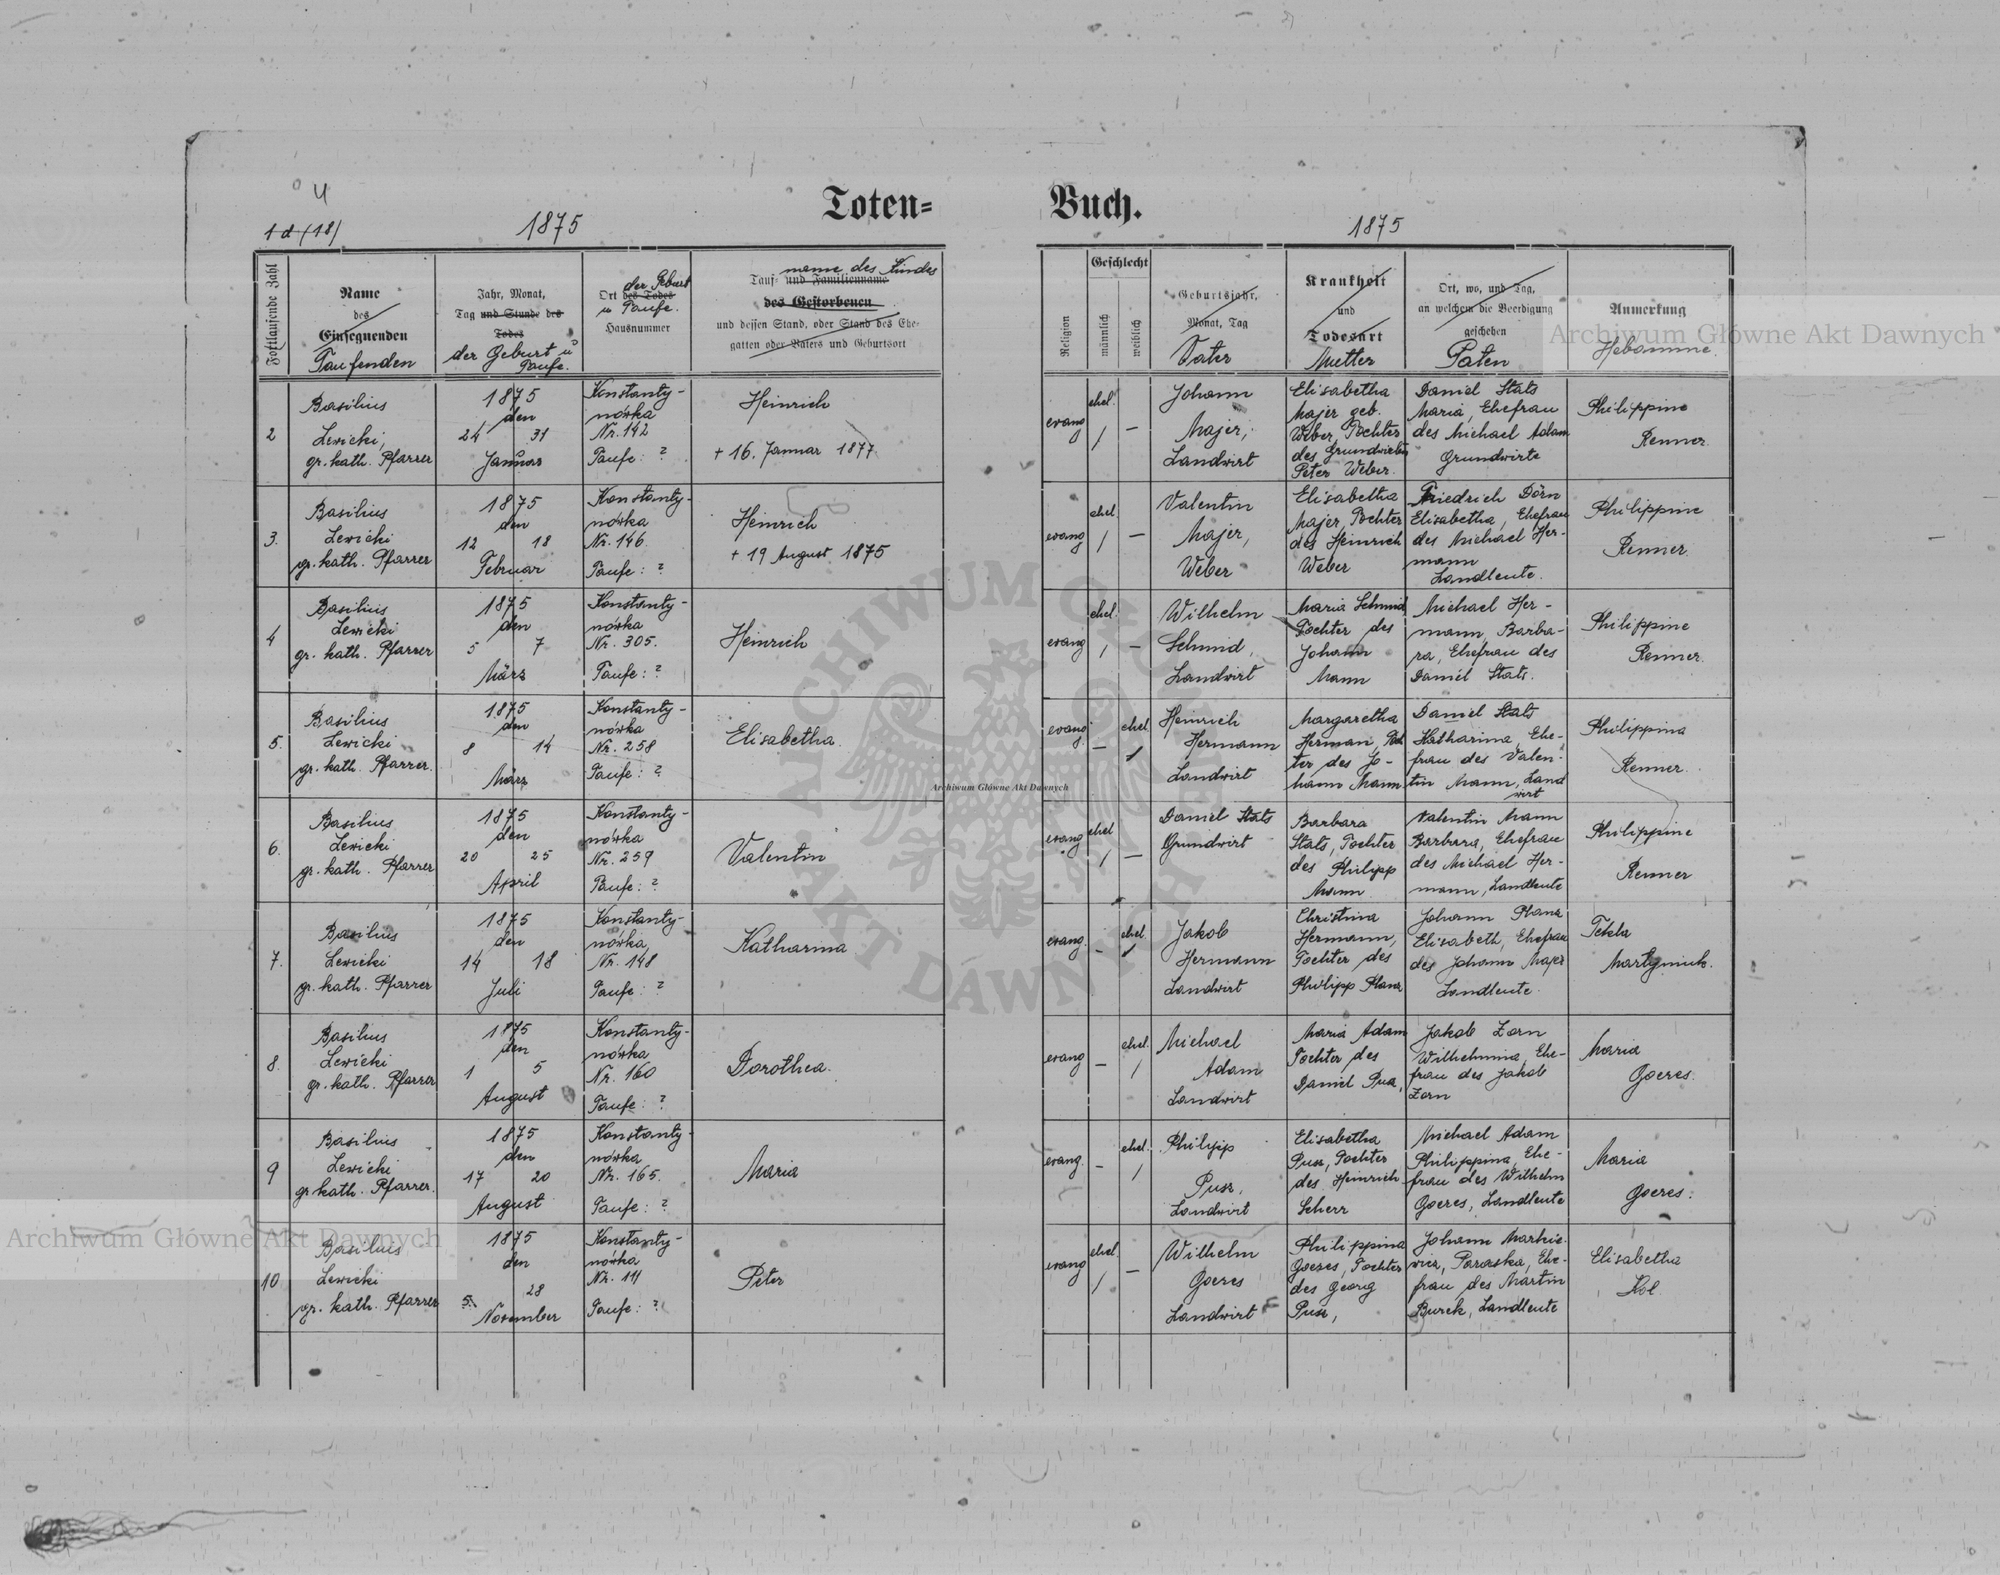 4
1d (18)
1875
Toten=
Buch.
1875
Fortlaufende Zahl
Name
des
Einsegnenden
Taufenden
Jahr, Monat,
Tag und Stunde des
Todes
der Geburt u
Taufe.
der Geburt
Ort des Todes
u Taufe.
Hausnummer
name des Kindes
Tauf- und Familienname
des Gestorbenen
und dessen Stand, oder Stand des Ehe-
gatten oder Vaters und Geburtsort
Religion
Geschlecht
männlich
weiblich
Geburtsjahr,
Monat, Tag
Vater
Krankheit
und
Todesart
Mutter
Ort, wo, und Tag,
an welchem die Beerdigung
geschehen
Paten
Anmerkung
Hebamme.
2
Basilius
Lewicki,
gr. kath. Pfarrer
1875
den
24 31
Januar
Konstanty-
nówka
Nr. 142
Taufe: ?
Heinrich
+ 16. Januar 1877
evang
ehel.
/
—
Johann
Majer,
Landwirt
Elisabetha
Majer geb.
Weber, Tochter
des Grundwirten
Peter Weber.
Daniel Stats
Maria, Ehefrau
des Michael Adam
Grundwirte
Philippine
Renner.
3.
Basilius
Lewicki
gr. kath. Pfarrer
1875
den
12 18
Februar
Konstanty-
nówka
Nr. 146.
Taufe: ?
Heinrich
+ 19 August 1875
evang
ehel.
/
—
Valentin
Majer,
Weber
Elisabetha
Majer, Tochter
des Heinrich
Weber
Friedrich Dörn
Elisabetha, Ehefrau
des Michael Her-
mann
Landleute.
Philippine
Renner.
4
Basilius
Lewicki
gr. kath. Pfarrer
1875
den
5 7
März
Konstanty-
nówka
Nr. 305.
Taufe: ?
Heinrich
evang
ehel.
/
—
Wilhelm
Schmid,
Landwirt
Maria Schmid
Tochter des
Johann
Mann
Michael Her-
mann, Barba-
ra, Ehefrau des
Daniel Stats.
Philippine
Renner.
5.
Basilius
Lewicki
gr. kath. Pfarrer.
1875
den
8 14
März
Konstanty-
nówka
Nr. 258
Taufe: ?
Elisabetha.
evang.
—
ehel.
/
Heinrich
Hermann
Landwirt
Margaretha
Herman, Toch
ter des Jo-
hann Mann
Daniel Stats
Katharina, Ehe-
frau des Valen-
tin Mann, Land
wirt
Philippina
Renner.
6.
Basilius
Lewicki
gr. kath. Pfarrer
1875
den
20 25
April
Konstanty-
nówka
Nr. 259
Taufe: ?
Valentin
evang
ehel
/
—
Daniel Stats
Grundwirt
Barbara
Stats, Tochter
des Philipp
Mann
Valentin Mann
Barbara, Ehefrau
des Michael Her-
mann, Landleute
Philippine
Renner
7.
Basilius
Lewicki
gr. kath. Pfarrer
1875
den
14 18
Juli
Konstanty-
nówka,
Nr. 148
Taufe: ?
Katharina
evang.
—
ehel.
/
Jakob
Hermann
Landwirt
Christina
Hermann,
Tochter des
Philipp Planz
Johann Planz
Elisabeth, Ehefrau
des Johann Majer
Landleute.
Tekla
Martyniuk.
8.
Basilius
Lewicki
gr. kath. Pfarrer
1875
den
1 5
August
Konstanty-
nówka
Nr. 160
Taufe: ?
Dorothea.
evang
—
ehel.
/
Michael
Adam
Landwirt
Maria Adam
Tochter des
Daniel Pusz,
Jakob Zorn
Wilhelmina, Ehe-
frau des Jakob
Zorn
Maria
Goeres.
9
Basilius
Lewicki
gr kath. Pfarrer.
1875
den
17 20
August
Konstanty-
nówka
Nr. 165.
Taufe: ?
Maria
evang.
—
ehel.
/
Philipp
Pusz,
Landwirt
Elisabetha
Pusz, Tochter
des Heinrich
Scherr
Michael Adam
Philippina, Ehe-
frau des Wilhelm
Goeres, Landleute
Maria
Goeres.
10.
Basilius
Lewicki
gr. kath. Pfarrer
1875
den
5. 28
November
Konstanty-
nówka
Nr. 111
Taufe: ?
Peter
evang
ehel.
/
—
Wilhelm
Goeres
Landwirt
Philippina
Goeres, Tochter
des Georg
Pusz,
Johann Markie-
wicz, Paraska, Ehe-
frau des Martin
Burek, Landleute
Elisabetha
Archiwum Główne Akt Dawnych
Archiwum Główne Akt Dawnych
Archiwum Główne Akt Dawnych
ARCHIWUM GŁÓWNE AKT DAWNYCH